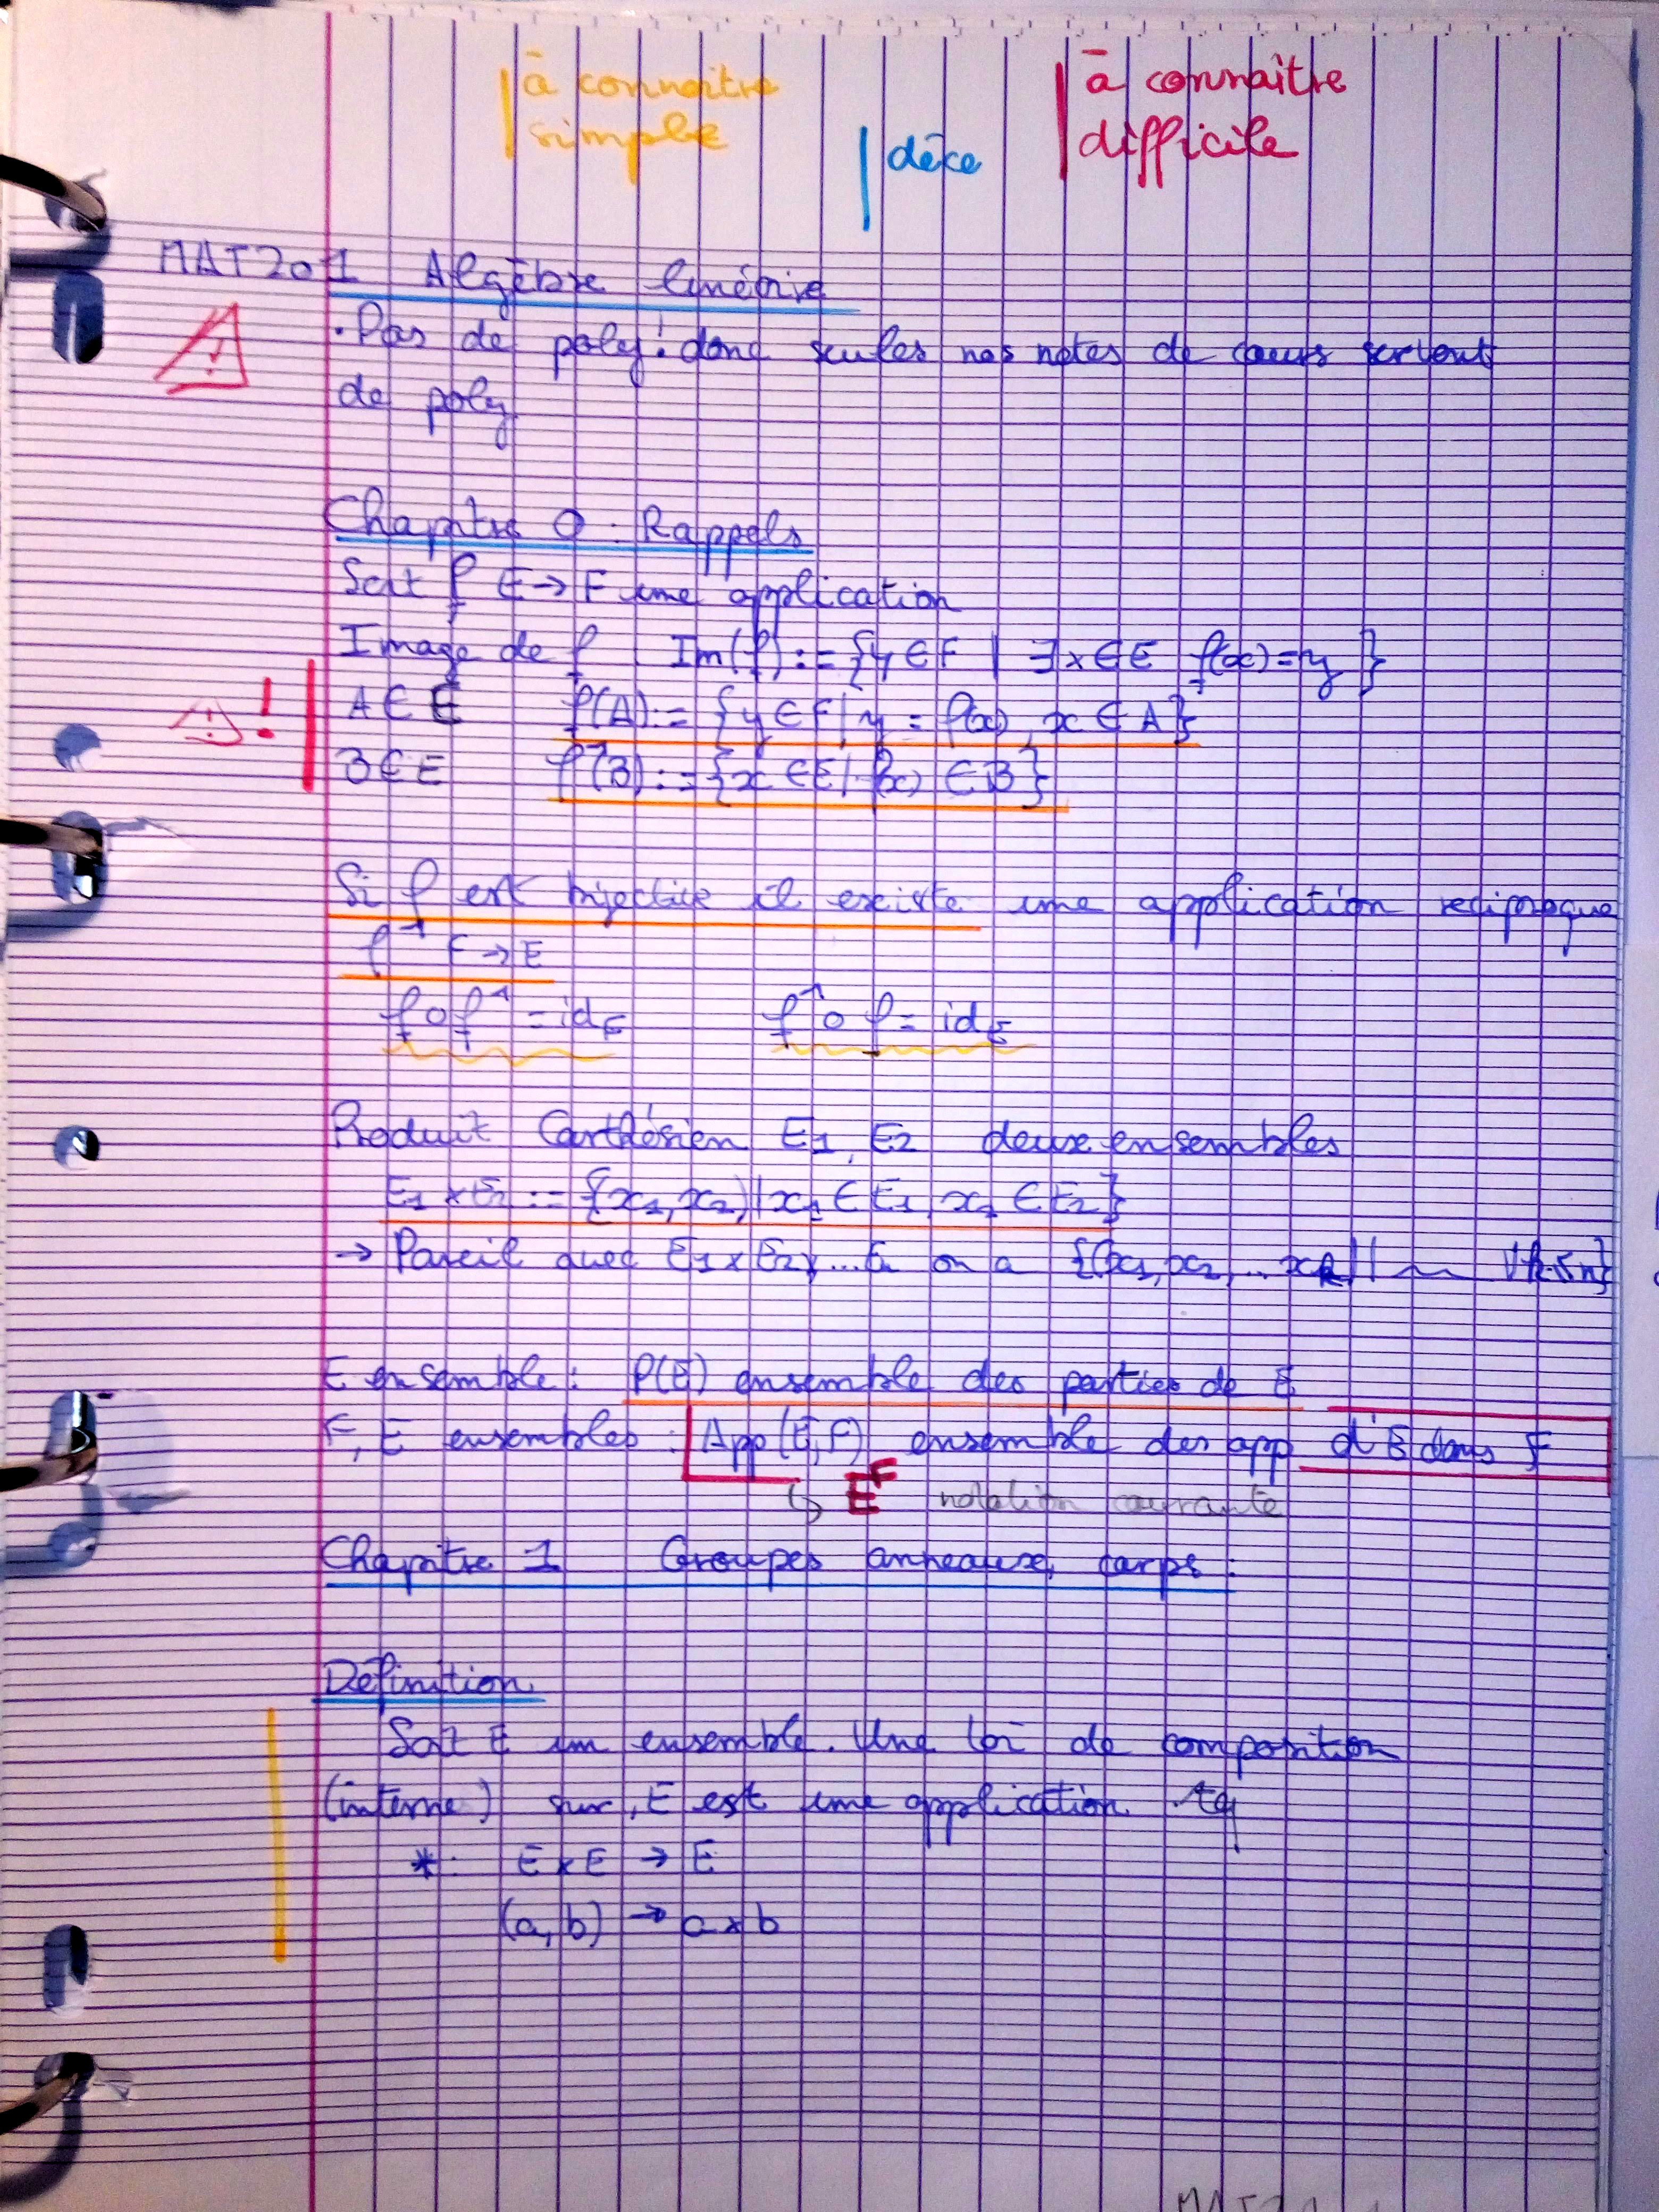 à connaitre
simple
déxo
à connaître
difficile
MAT201 Algèbre linéaire
• Pas de poly : donc seules nos notes de cours servent
de poly
Chapitre 0 : Rappels
Soit f E → F une application
Image de f Im(f) := {y ∈ F | ∃ x ∈ E f(x) = y }
A ∈ E f(A) := {y ∈ F | y = f(x), x ∈ A}
B ∈ E f⁻¹(B) := {x ∈ E | f(x) ∈ B}
Si f est bijective il existe une application reciproque
f⁻¹ F → E
f o f⁻¹ = id_F f⁻¹ o f = id_E
Produit Carthésien E₁, E₂ deux ensembles
E₁ × E₂ := {x₁, x₂) | x₁ ∈ E₁, x₂ ∈ E₂}
→ Pareil avec E₁ × E₂ × ... on a {(x₁, x₂, ... x
E ensemble : P(E) ensemble des parties de E
F, E ensembles : App(E, F) ensemble des app d'E dans F
↳ E^F notation courante
Chapitre 1 Groupes anneaux, corps :
Définition
Soit E un ensemble. Une loi de composition
(interne) sur E est une application tq
* : E × E → E
(a, b) → a * b